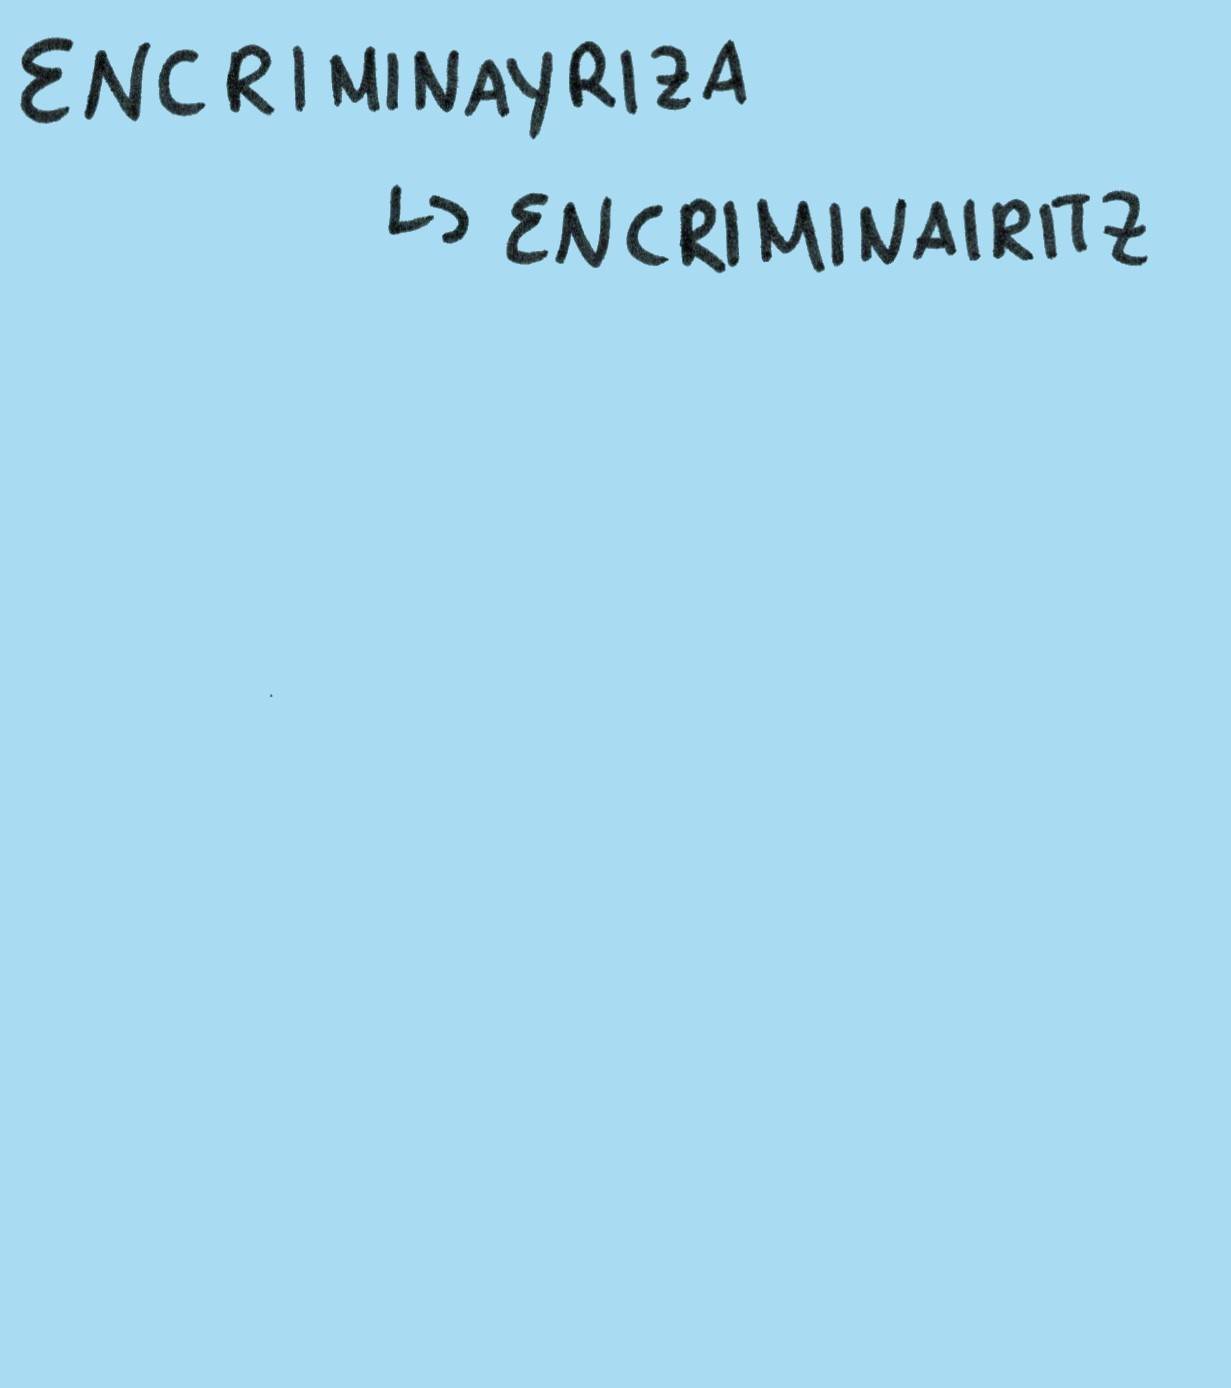 ENCRIMINAYRIZA
↳ ENCRIMINAIRITZ